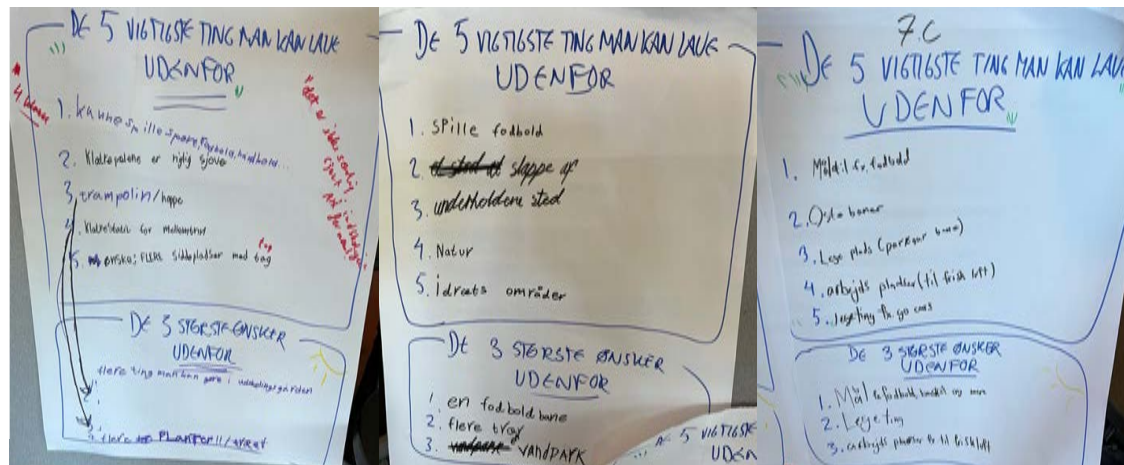 DE 5 VIGTIGSTE TING MAN KAN LAVE
UDENFOR
1. kunne spille sport, fodbold, håndbold...
2. Klatrepalene er rigtig sjove
3. trampolin/hoppe
4. Klatrestativ for mellemtrin
5. ønske; FLERE siddepladser med tag
det er ikke
DE 3 STØRSTE ØNSKER
UDENFOR
flere ting man kan gøre i
flere
DE 5 VIGTIGSTE TING MAN KAN LAVE
UDENFOR
1. Spille fodbold
2. slappe af
3. underholdene sted
4. Natur
5. idræts områder
DE 3 STØRSTE ØNSKER
UDENFOR
1. en fodboldbane
2. flere træer
3. VANDPARK
DE 5 VIGTIGSTE
UDEN
7.C
DE 5 VIGTIGSTE TING MAN KAN LAVE
UDENFOR
1. Mål til fx. fodbold
2.
3. Lege plads
4. arbejds pladser (til frisk luft)
5. legeting fx. go carts
DE 3 STØRSTE ØNSKER
UDENFOR
1. Mål og mere
2. Legeting
3. arbejds pladser